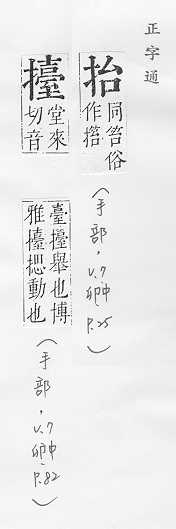 正字通
抬 同笞俗
作撘
(手部,v.7
卯中
P.25)
擡 堂來
切音
臺擡舉也博
雅擡揌動也
(手部,v.7
卯中
P.82)